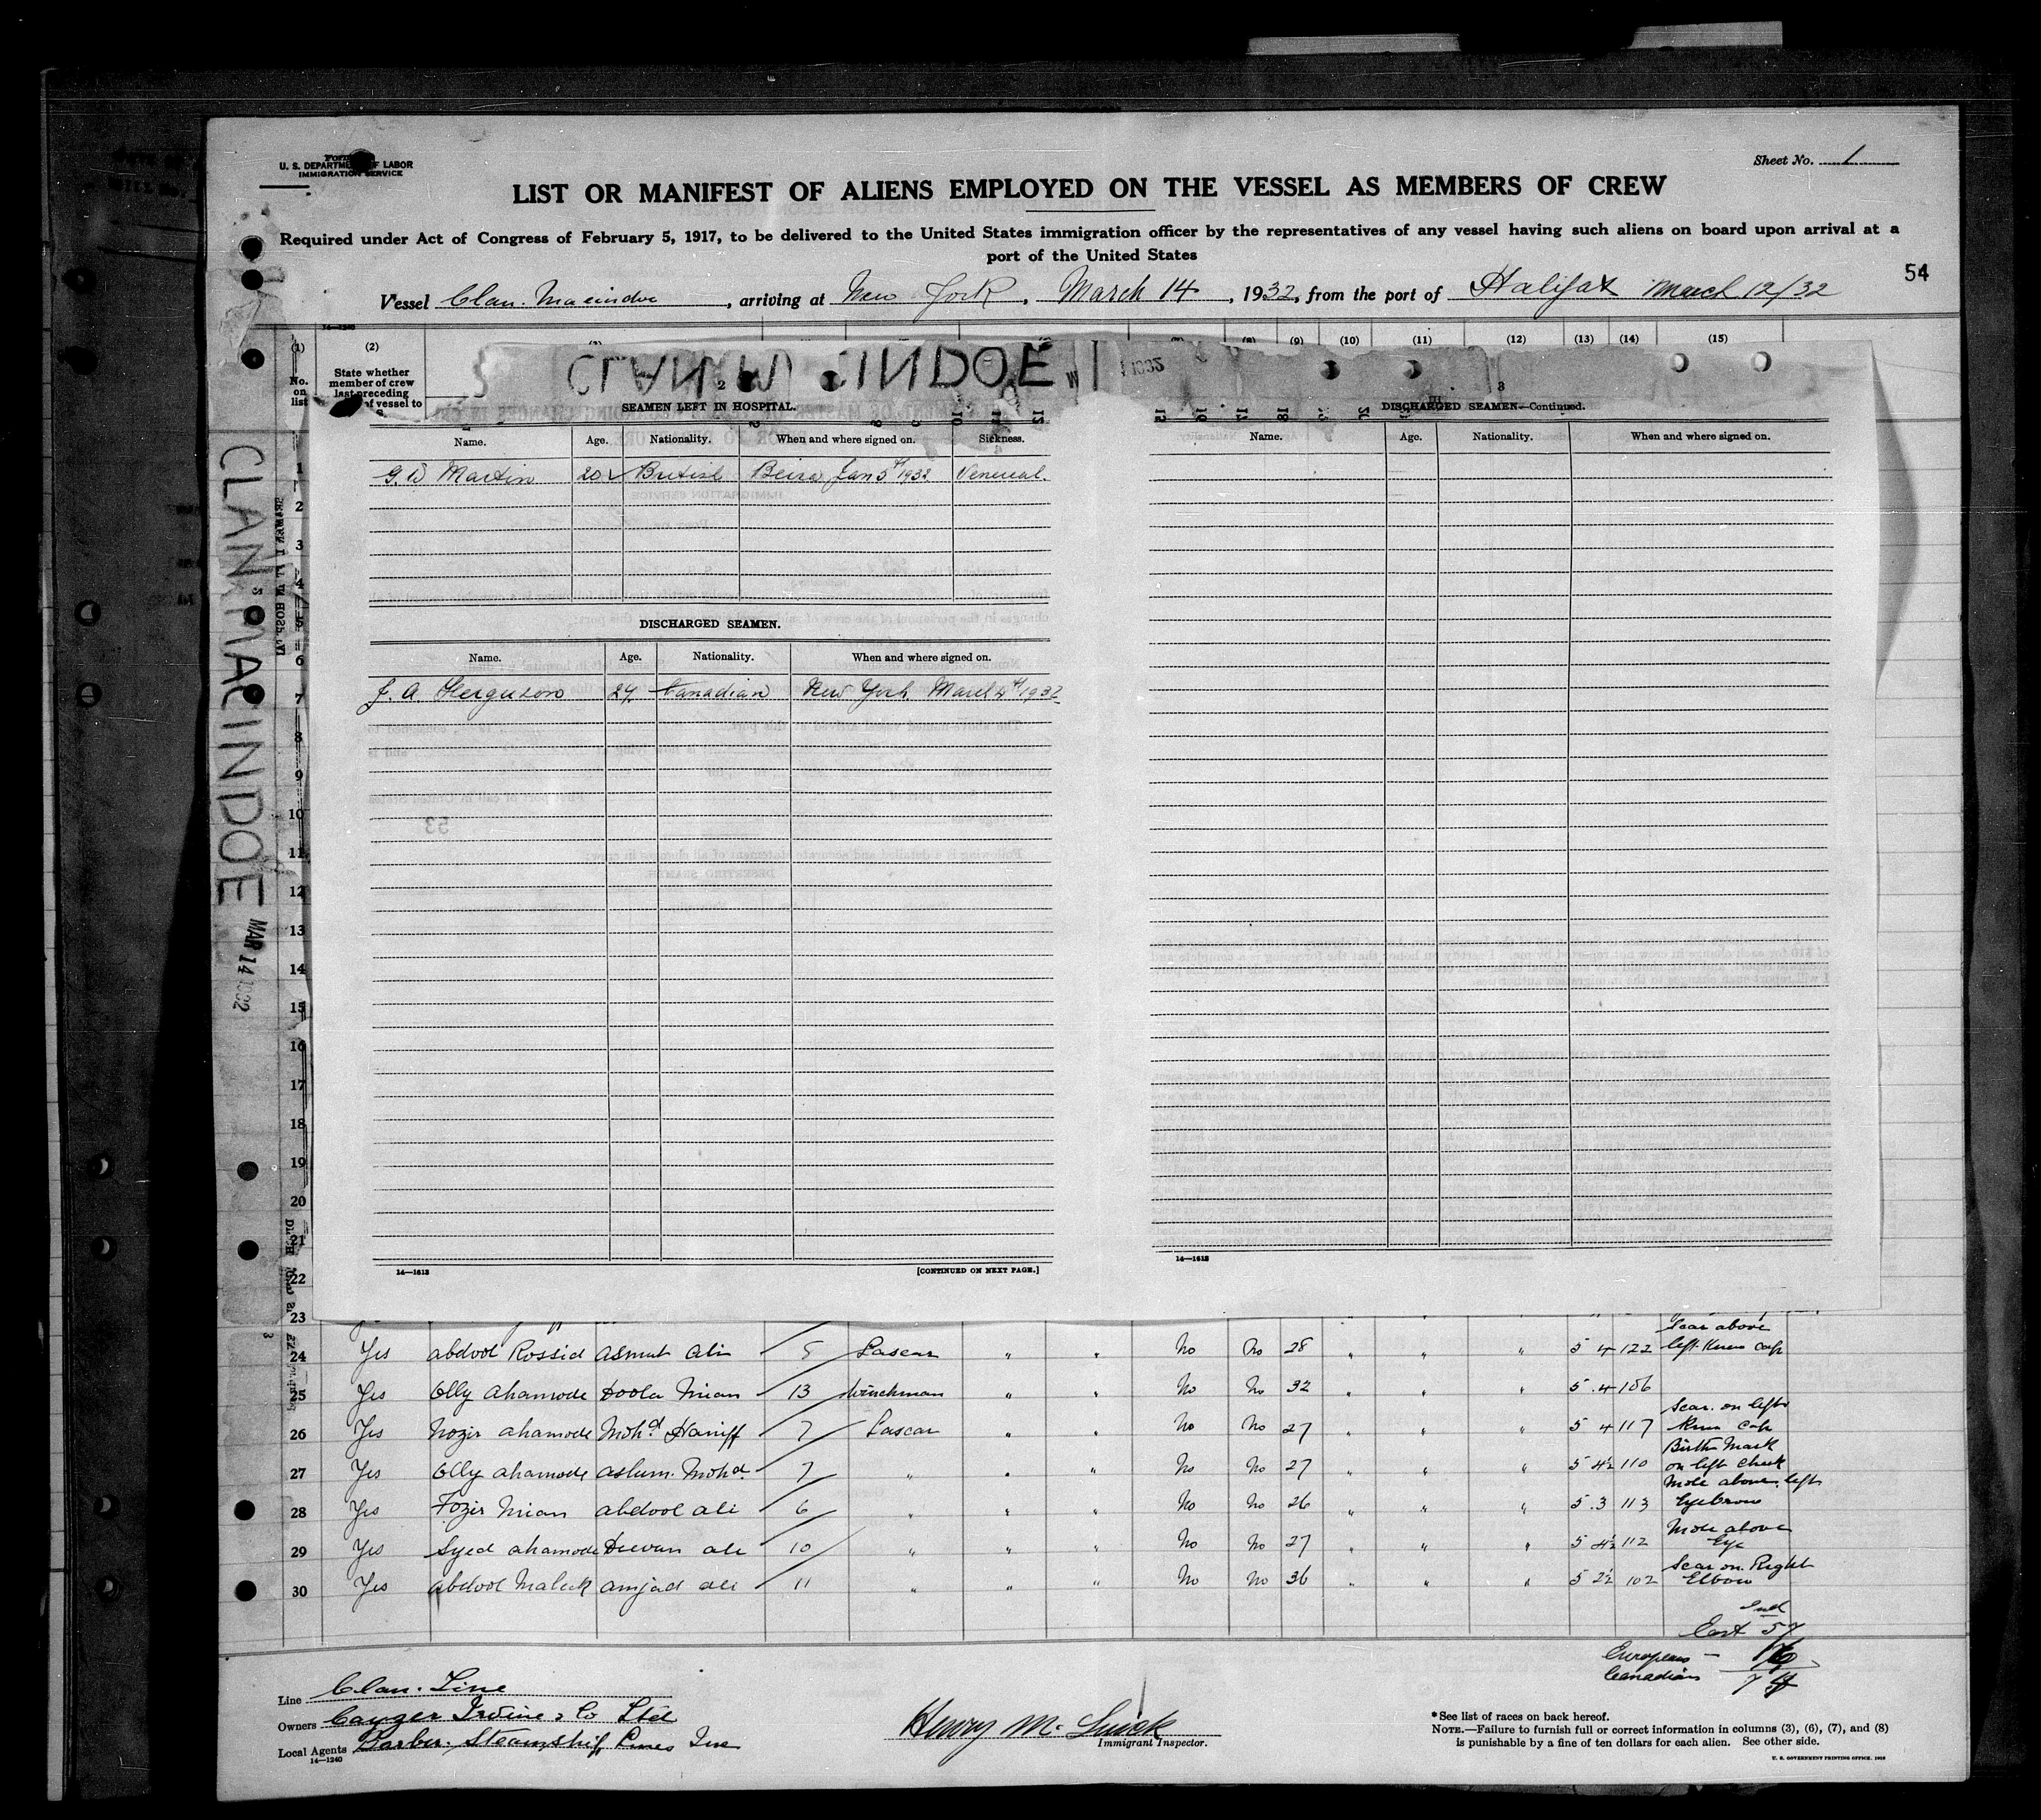 Form
U. S. DEPARTMENT OF LABOR
IMMIGRATION SERVICE
Sheet No. 1
LIST OR MANIFEST OF ALIENS EMPLOYED ON THE VESSEL AS MEMBERS OF CREW
Required under Act of Congress of February 5, 1917, to be delivered to the United States immigration officer by the representatives of any vessel having such aliens on board upon arrival at a
port of the United States
54
Vessel Clan. Macindoe, arriving at New York, March 14, 1932, from the port of Halifax March 12/32
14—1240
(1) (2) (8) (9) (10) (11) (12) (13) (14) (15)
No. on list
State whether member of crew last preceding of vessel to
CLAN INDOE
1932
2
3
SEAMEN LEFT IN HOSPITAL.
Name. Age. Nationality. When and where signed on. Sickness.
G. D Martin 20 British Beira Jan 5th 1932 Venereal.
DISCHARGED SEAMEN.
Name. Age. Nationality. When and where signed on.
J. A Ferguson 24 Canadian New York March 4th 1932
14—1613
[CONTINUED ON NEXT PAGE.]
DISCHARGED SEAMEN—Continued.
Name. Age. Nationality. When and where signed on.
14—1613
CLAN MACINDOE
MAR 14 1932
53
1
2
3
4
5
6
7
8
9
10
11
12
13
14
15
16
17
18
19
20
21
22
23
24 Yes abdool Rossid asmut ali 5 Lascar " " No No 28 " " " 5 4 122 Scar above left Knee cap
25 Yes Olly ahamode Doola Mian 13 Winchman " " No No 32 " " " 5 .4 106
26 Yes Nozir ahamode Mohd Haniff 7 Lascar " " No No 27 " " " 5 4 117 Scar. on left Knee Cap
27 Yes Olly ahamode aslum. Mohd 7 " " " No No 27 " " " 5 4½ 110 Birth Mark on left cheek
28 Yes Fozir Mian abdool ali 6 " " " No No 26 " " " 5 .3 113 Mole above left Eyebrow
29 Yes Syed ahamode Deewan ali 10 " " " No No 27 " " " 5 4½ 112 Mole above Eye
30 Yes abdool Maleck amjad ali 11 " " " No No 36 " " " 5 2½ 102 Scar on Right Elbow
East Ind 57
European — 16
Canadian
74
Line Clan. Line
Owners Cayzer Irvine & Co Ltd
Local Agents Barber. Steamship Lines Inc
14—1240
Immigrant Inspector.
*See list of races on back hereof.
NOTE.—Failure to furnish full or correct information in columns (3), (6), (7), and (8)
is punishable by a fine of ten dollars for each alien. See other side.
U. S. GOVERNMENT PRINTING OFFICE.